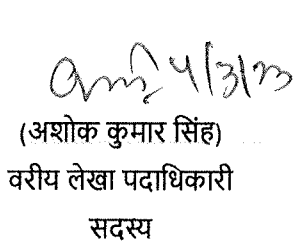 4/3/23
(अशोक कुमार सिंह)
वरीय लेखा पदाधिकारी
सदस्य